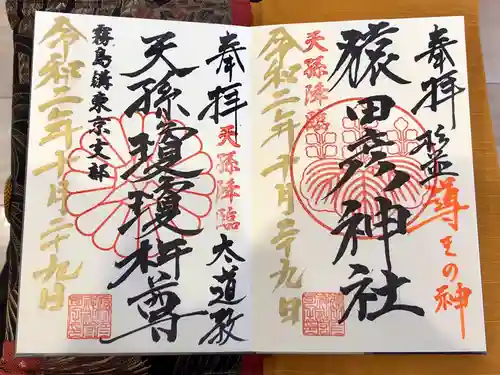 奉拝
杉並
導きの神
猿田彦神社
天孫降臨
令和二年十月二十九日
奉拝
天孫降臨
太道教
天孫瓊瓊杵尊
霧島講東京支部
令和二年十月二十九日